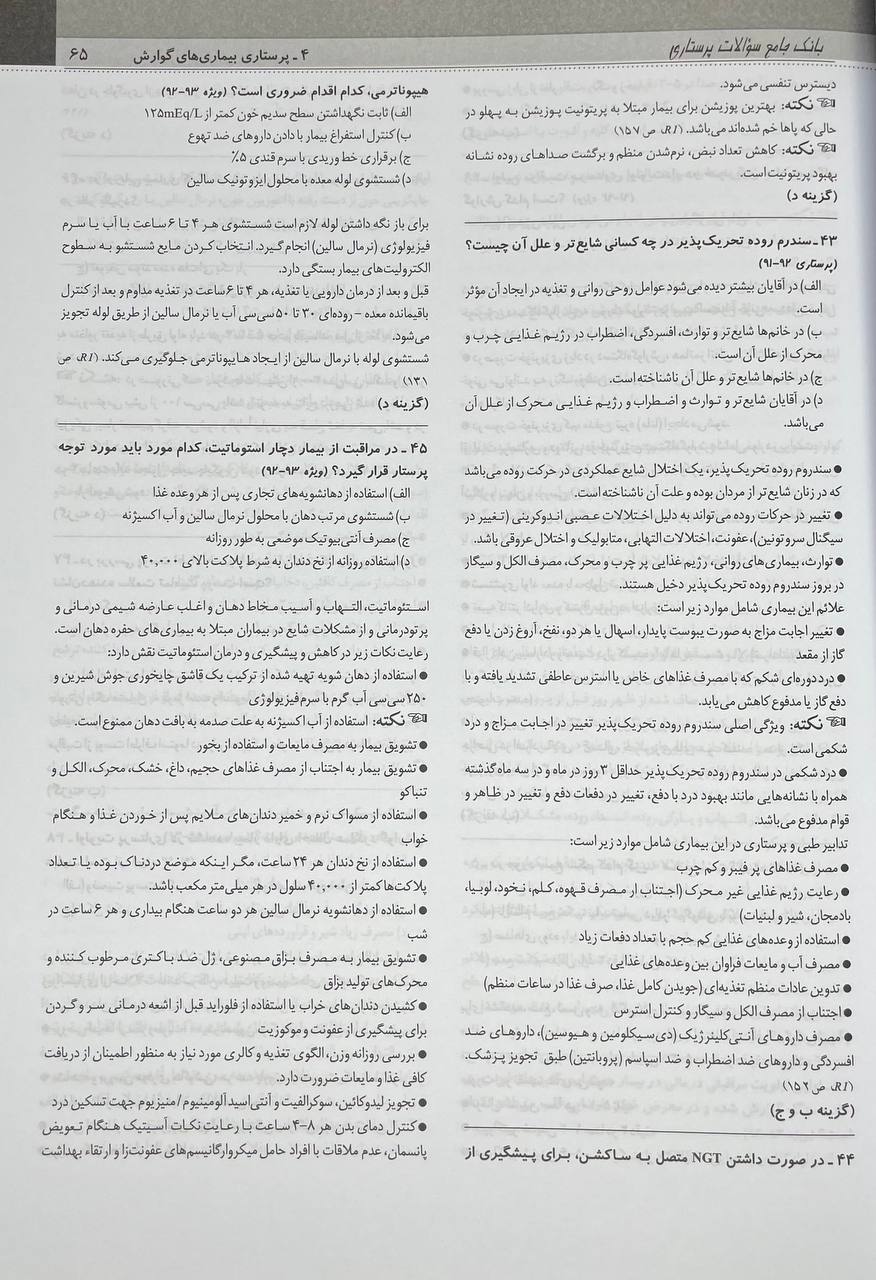 بانک جامع سؤالات پرستاری
۴ ـ پرستاری بیماری‌های گوارش
۶۵
دیسترس تنفسی می‌شود.
نکته: بهترین پوزیشن برای بیمار مبتلا به پریتونیت پوزیشن به پهلو در
حالی که پاها خم شده‌اند می‌باشد. (R1، ص ۱۵۷)
نکته: کاهش تعداد نبض، نرم‌شدن منظم و برگشت صداهای روده نشانه
بهبود پریتونیت است.
(گزینه د)
۴۳ـ سندرم روده تحریک‌پذیر در چه کسانی شایع‌تر و علل آن چیست؟
(پرستاری ۹۲-۹۱)
الف) در آقایان بیشتر دیده می‌شود عوامل روحی روانی و تغذیه در ایجاد آن مؤثر
است.
ب) در خانم‌ها شایع‌تر و توارث، افسردگی، اضطراب در رژیم غذایی چرب و
محرک از علل آن است.
ج) در خانم‌ها شایع‌تر و علل آن ناشناخته است.
د) در آقایان شایع‌تر و توارث و اضطراب و رژیم غذایی محرک از علل آن
می‌باشد.
● سندروم روده تحریک‌پذیر، یک اختلال شایع عملکردی در حرکت روده می‌باشد
که در زنان شایع‌تر از مردان بوده و علت آن ناشناخته است.
● تغییر در حرکات روده می‌تواند به دلیل اختلالات عصبی اندوکرینی (تغییر در
سیگنال سروتونین)، عفونت، اختلالات التهابی، متابولیک و اختلال عروقی باشد.
● توارث، بیماری‌های روانی، رژیم غذایی پر چرب و محرک، مصرف الکل و سیگار
در بروز سندروم روده تحریک‌پذیر دخیل هستند.
علائم این بیماری شامل موارد زیر است:
● تغییر اجابت مزاج به صورت یبوست پایدار، اسهال یا هر دو، نفخ، آروغ زدن یا دفع
گاز از مقعد
● درد دوره‌ای شکم که با مصرف غذاهای خاص یا استرس عاطفی تشدید یافته و با
دفع گاز یا مدفوع کاهش می‌یابد.
نکته: ویژگی اصلی سندروم روده تحریک‌پذیر تغییر در اجابت مزاج و درد
شکمی است.
● درد شکمی در سندروم روده تحریک‌پذیر حداقل ۳ روز در ماه و در سه ماه گذشته
همراه با نشانه‌هایی مانند بهبود درد با دفع، تغییر در دفعات دفع و تغییر در ظاهر و
قوام مدفوع می‌باشد.
تدابیر طبی و پرستاری در این بیماری شامل موارد زیر است:
● مصرف غذاهای پر فیبر و کم چرب
● رعایت رژیم غذایی غیر محرک (اجتناب از مصرف قهوه، کلم، نخود، لوبیا،
بادمجان، شیر و لبنیات)
● استفاده از وعده‌های غذایی کم حجم با تعداد دفعات زیاد
● مصرف آب و مایعات فراوان بین وعده‌های غذایی
● تدوین عادات منظم تغذیه‌ای (جویدن کامل غذا، صرف غذا در ساعات منظم)
● اجتناب از مصرف الکل و سیگار و کنترل استرس
● مصرف داروهای آنتی‌کلینرژیک (دی‌سیکلومین و هیوسین)، داروهای ضد
افسردگی و داروهای ضد اضطراب و ضد اسپاسم (پروبانتین) طبق تجویز پزشک.
(R1، ص ۱۵۲)
(گزینه ب و ج)
۴۴ـ در صورت داشتن NGT متصل به ساکشن، برای پیشگیری از
هیپوناترمی، کدام اقدام ضروری است؟ (ویژه ۹۳-۹۲)
الف) ثابت نگهداشتن سطح سدیم خون کمتر از ۱۲۵mEq/L
ب) کنترل استفراغ بیمار با دادن داروهای ضد تهوع
ج) برقراری خط وریدی با سرم قندی ۵٪
د) شستشوی لوله معده با محلول ایزوتونیک سالین
برای باز نگه داشتن لوله لازم است شستشوی هر ۴ تا ۶ ساعت با آب یا سرم
فیزیولوژی (نرمال سالین) انجام گیرد. انتخاب کردن مایع شستشو به سطوح
الکترولیت‌های بیمار بستگی دارد.
قبل و بعد از درمان دارویی یا تغذیه، هر ۴ تا ۶ ساعت در تغذیه مداوم و بعد از کنترل
باقیمانده معده – روده‌ای ۳۰ تا ۵۰ سی‌سی آب یا نرمال سالین از طریق لوله تجویز
می‌شود.
شستشوی لوله با نرمال سالین از ایجاد هایپوناترمی جلوگیری می‌کند. (R1، ص
۱۳۱)
(گزینه د)
۴۵ ـ در مراقبت از بیمار دچار استوماتیت، کدام مورد باید مورد توجه
پرستار قرار گیرد؟ (ویژه ۹۳-۹۲)
الف) استفاده از دهانشویه‌های تجاری پس از هر وعده غذا
ب) شستشوی مرتب دهان با محلول نرمال سالین و آب اکسیژنه
ج) مصرف آنتی‌بیوتیک موضعی به طور روزانه
د) استفاده روزانه از نخ دندان به شرط پلاکت بالای ۴۰,۰۰۰
استئوماتیت، التهاب و آسیب مخاط دهان و اغلب عارضه شیمی درمانی و
پرتودرمانی و از مشکلات شایع در بیماران مبتلا به بیماری‌های حفره دهان است.
رعایت نکات زیر در کاهش و پیشگیری و درمان استئوماتیت نقش دارد:
● استفاده از دهان شویه تهیه شده از ترکیب یک قاشق چایخوری جوش شیرین و
۲۵۰ سی‌سی آب گرم با سرم فیزیولوژی
نکته: استفاده از آب اکسیژنه به علت صدمه به بافت دهان ممنوع است.
● تشویق بیمار به مصرف مایعات و استفاده از بخور
● تشویق بیمار به اجتناب از مصرف غذاهای حجیم، داغ، خشک، محرک، الکل و
تنباکو
● استفاده از مسواک نرم و خمیر دندان‌های ملایم پس از خوردن غذا و هنگام
خواب
● استفاده از نخ دندان هر ۲۴ ساعت، مگر اینکه موضع دردناک بوده یا تعداد
پلاکت‌ها کمتر از ۴۰,۰۰۰ سلول در هر میلی متر مکعب باشد.
● استفاده از دهانشویه نرمال سالین هر دو ساعت هنگام بیداری و هر ۶ ساعت در
شب
● تشویق بیمار به مصرف بزاق مصنوعی، ژل ضد باکتری مرطوب کننده و
محرک‌های تولید بزاق
● کشیدن دندان‌های خراب یا استفاده از فلوراید قبل از اشعه درمانی سر و گردن
برای پیشگیری از عفونت و موکوزیت
● بررسی روزانه وزن، الگوی تغذیه و کالری مورد نیاز به منظور اطمینان از دریافت
کافی غذا و مایعات ضرورت دارد.
● تجویز لیدوکائین، سوکرالفیت و آنتی‌اسید آلومینیوم/ منیزیوم جهت تسکین درد
● کنترل دمای بدن هر ۸-۴ ساعت با رعایت نکات آسپتیک هنگام تعویض
پانسمان، عدم ملاقات با افراد حامل میکروارگانیسم‌های عفونت‌زا و ارتقاء بهداشت